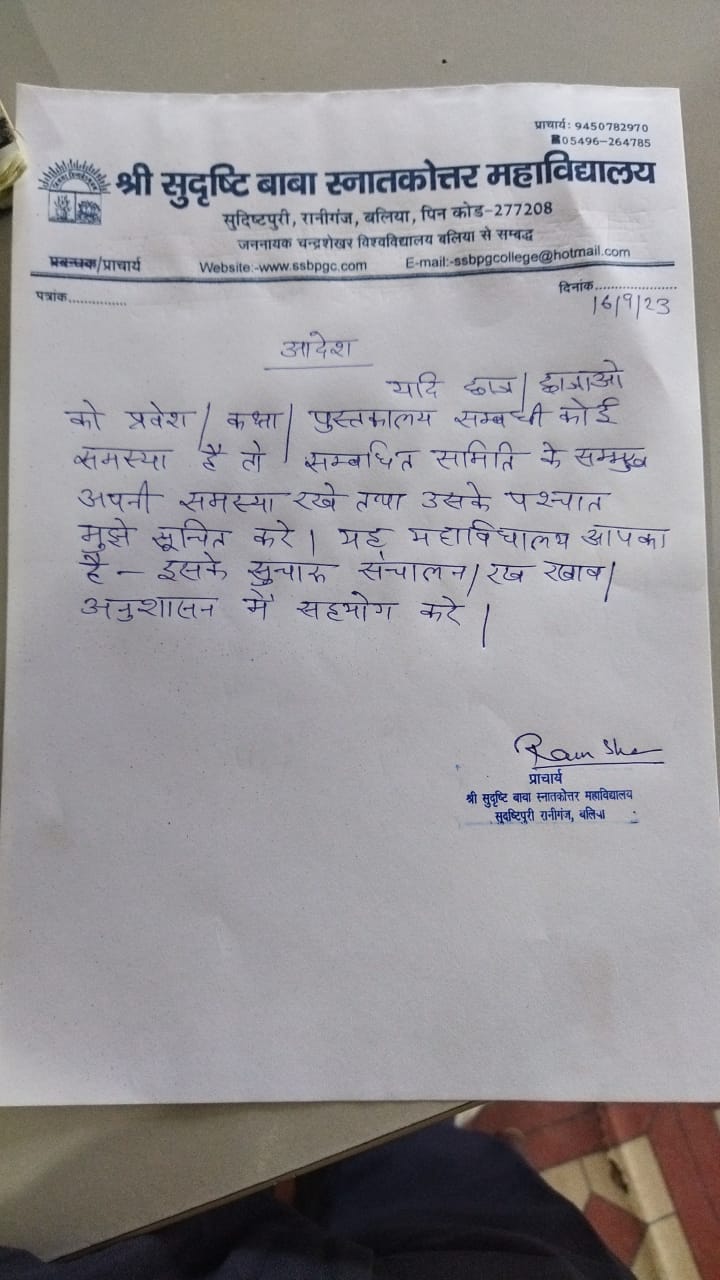 प्राचार्य: 9450782970
05496-264785
श्री सुदृष्टि बाबा स्नातकोत्तर महाविद्यालय
सुदिष्टपुरी, रानीगंज, बलिया, पिन कोड-277208
जननायक चन्द्रशेखर विश्वविद्यालय बलिया से सम्बद्ध
प्रबन्धक/प्राचार्य Website:-www.ssbpgc.com E-mail:-ssbpgcollege@hotmail.com
पत्रांक.............. दिनांक....................
16/9/23
आदेश
यदि छात्र/छात्राओ
को प्रवेश/कक्षा/पुस्तकालय सम्बधी कोई
समस्या है तो सम्बधित समिति के सम्मुख
अपनी समस्या रखे तथा उसके पश्चात
मुझे सूचित करे। यह महाविद्यालय आपका
है - इसके सुचारू संचालन/रख रखाव/
अनुशासन में सहयोग करे।
प्राचार्य
श्री सुदृष्टि बाबा स्नातकोत्तर महाविद्यालय
सुदृष्टिपुरी रानीगंज, बलिया